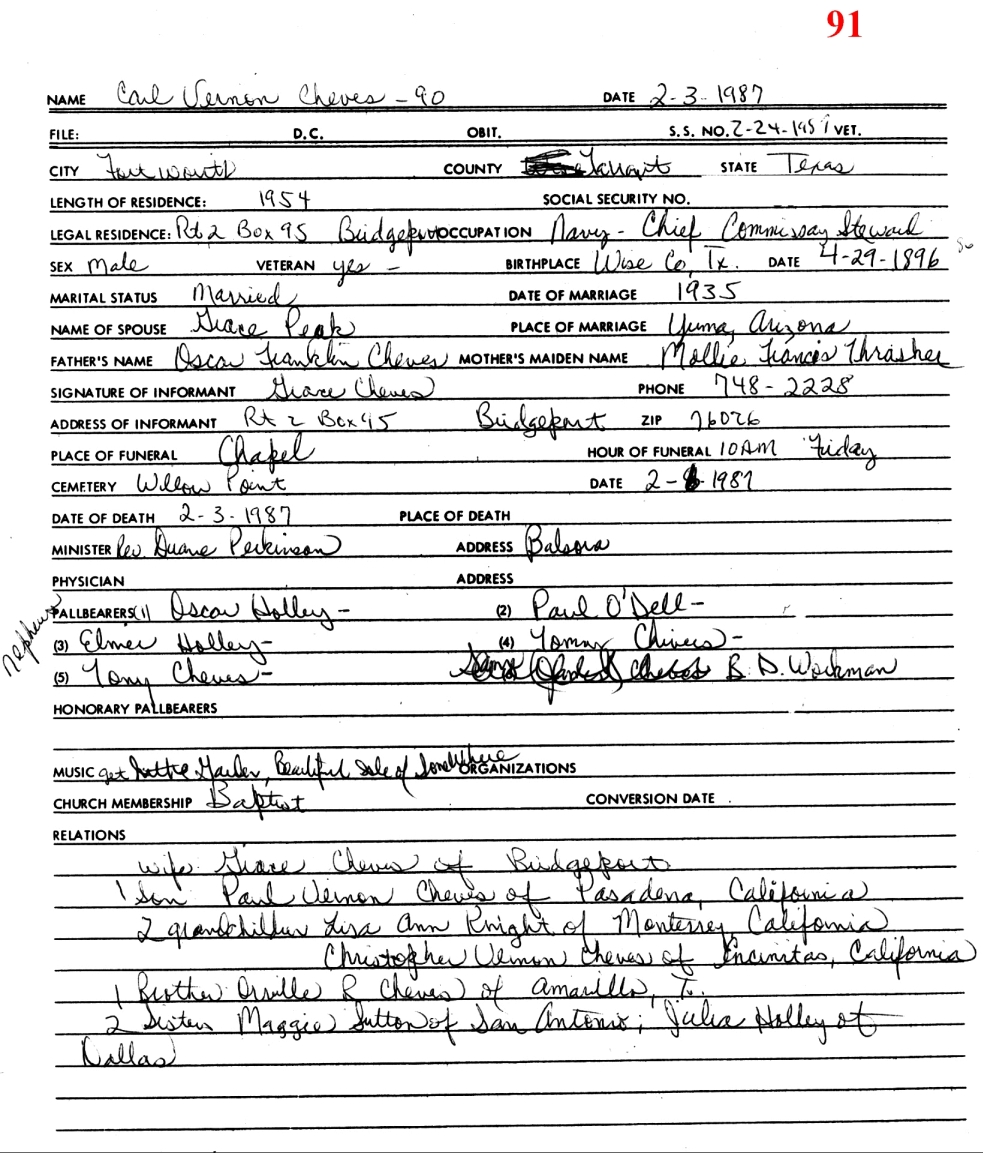 91
NAME Carl Vernon Cheves - 90 DATE 2-3-1987
FILE: D.C. OBIT. S.S. NO. 2-24-1957 VET.
CITY Fort Worth COUNTY Tarrant STATE Texas
LENGTH OF RESIDENCE: 1954 SOCIAL SECURITY NO.
LEGAL RESIDENCE: Rt 2 Box 95 Bridgeport OCCUPATION Navy - Chief Commissay Steward
SEX Male VETERAN yes - BIRTHPLACE Wise Co, Tx. DATE 4-29-1896
MARITAL STATUS Married DATE OF MARRIAGE 1935
NAME OF SPOUSE Grace Peak PLACE OF MARRIAGE Yuma, Arizona
FATHER'S NAME Oscar Franklin Cheves MOTHER'S MAIDEN NAME Mollie Francis Thrasher
SIGNATURE OF INFORMANT Grace Cheves PHONE 748-2228
ADDRESS OF INFORMANT Rt 2 Box 95 Bridgeport ZIP 76026
PLACE OF FUNERAL Chapel HOUR OF FUNERAL 10 AM Friday
CEMETERY Willow Point DATE 2-6-1987
DATE OF DEATH 2-3-1987 PLACE OF DEATH
MINISTER Rev. Duane Perkinson ADDRESS Balsora
PHYSICIAN ADDRESS
nephews
PALLBEARERS (1) Oscar Holley - (2) Paul O'Dell -
(3) Elmer Holley - (4) Tommy Chivers -
(5) Tony Cheves - B. D. Workman
HONORARY PALLBEARERS
MUSIC get Beautiful Isle of Somewhere ORGANIZATIONS
CHURCH MEMBERSHIP Baptist CONVERSION DATE
RELATIONS
wife Grace Cheves of Bridgeport
1 son Paul Vernon Cheves of Pasadena, California
2 grandchillren Lisa Ann Knight of Monterrey, California
Christopher Vernon Cheves of Encinitas, California
1 Brother Orville R Cheves of Amarillo, Tx.
2 Sisters Maggie Sutton of San Antonio; Julia Holley of
Dallas